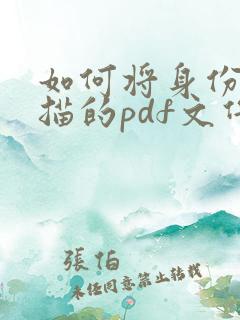 如何将身份
描的pdf文件
張伯
未经同意禁止转载